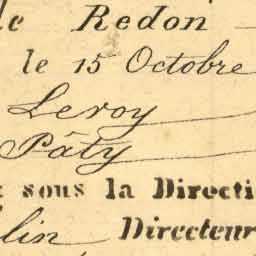 de Redon
le 15 Octobre
Leroy
Pâty
sous la Directi
lin Directeur